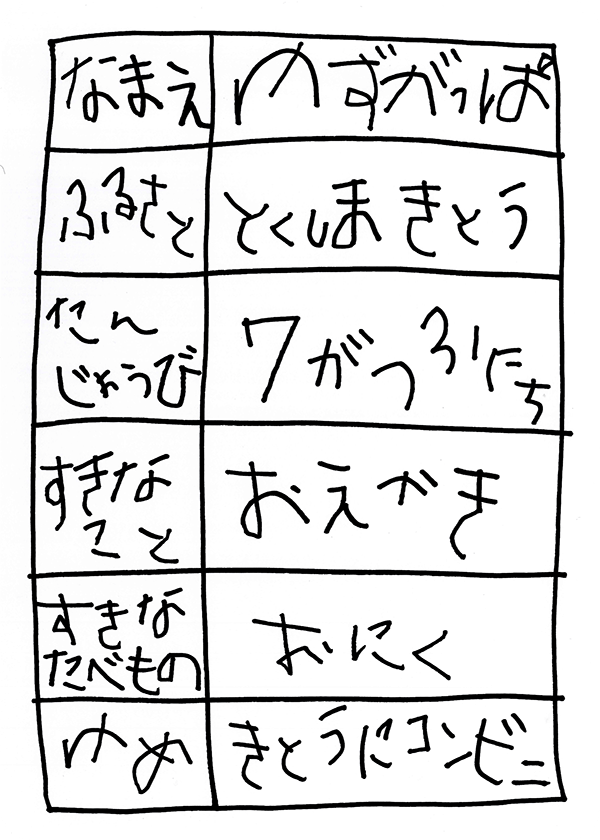 なまえ ゆずがっぱ
ふるさと とくしま きとう
たん
じょうび 7がつ31にち
すきな
こと おえかき
すきな
たべもの おにく
ゆめ きとうにコンビニ